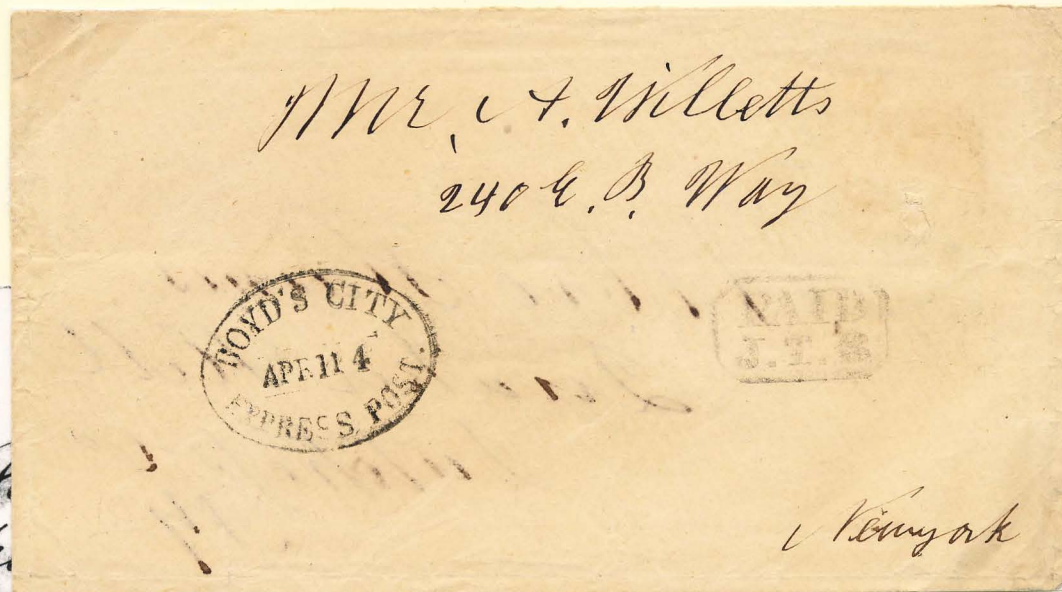 Mr. A. Willetts
240 E. B. Way
BOYD'S CITY
APR 11 4
EXPRESS POST.
PAID
J.T.B
Newyork